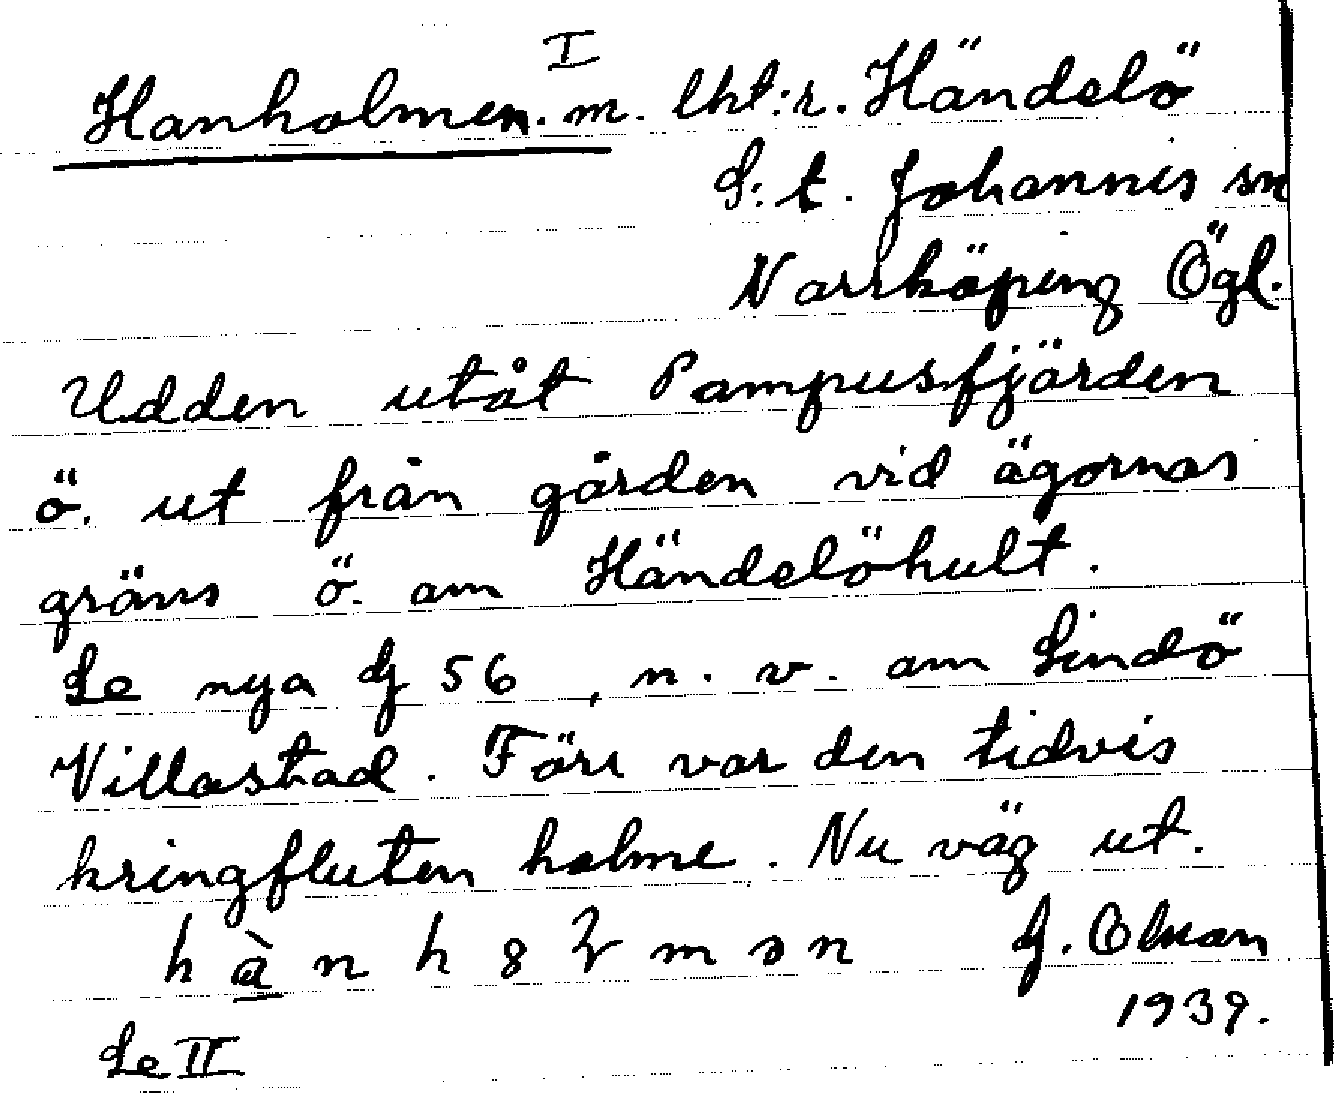 I
Hanholmen. m. lht:r. Händelö
S:t. Johannis sn
Norrköping Ögl.
Udden utåt Pampusfjärden
ö. ut från gården vid ägornas
gräns ö. om Händelöhult.
Se nya G 56, n. v. om Lindö
Villastad. Förr var den tidvis
kringfluten holme. Nu väg ut.
h à n h m ə n G. Olson
1939.
Se II